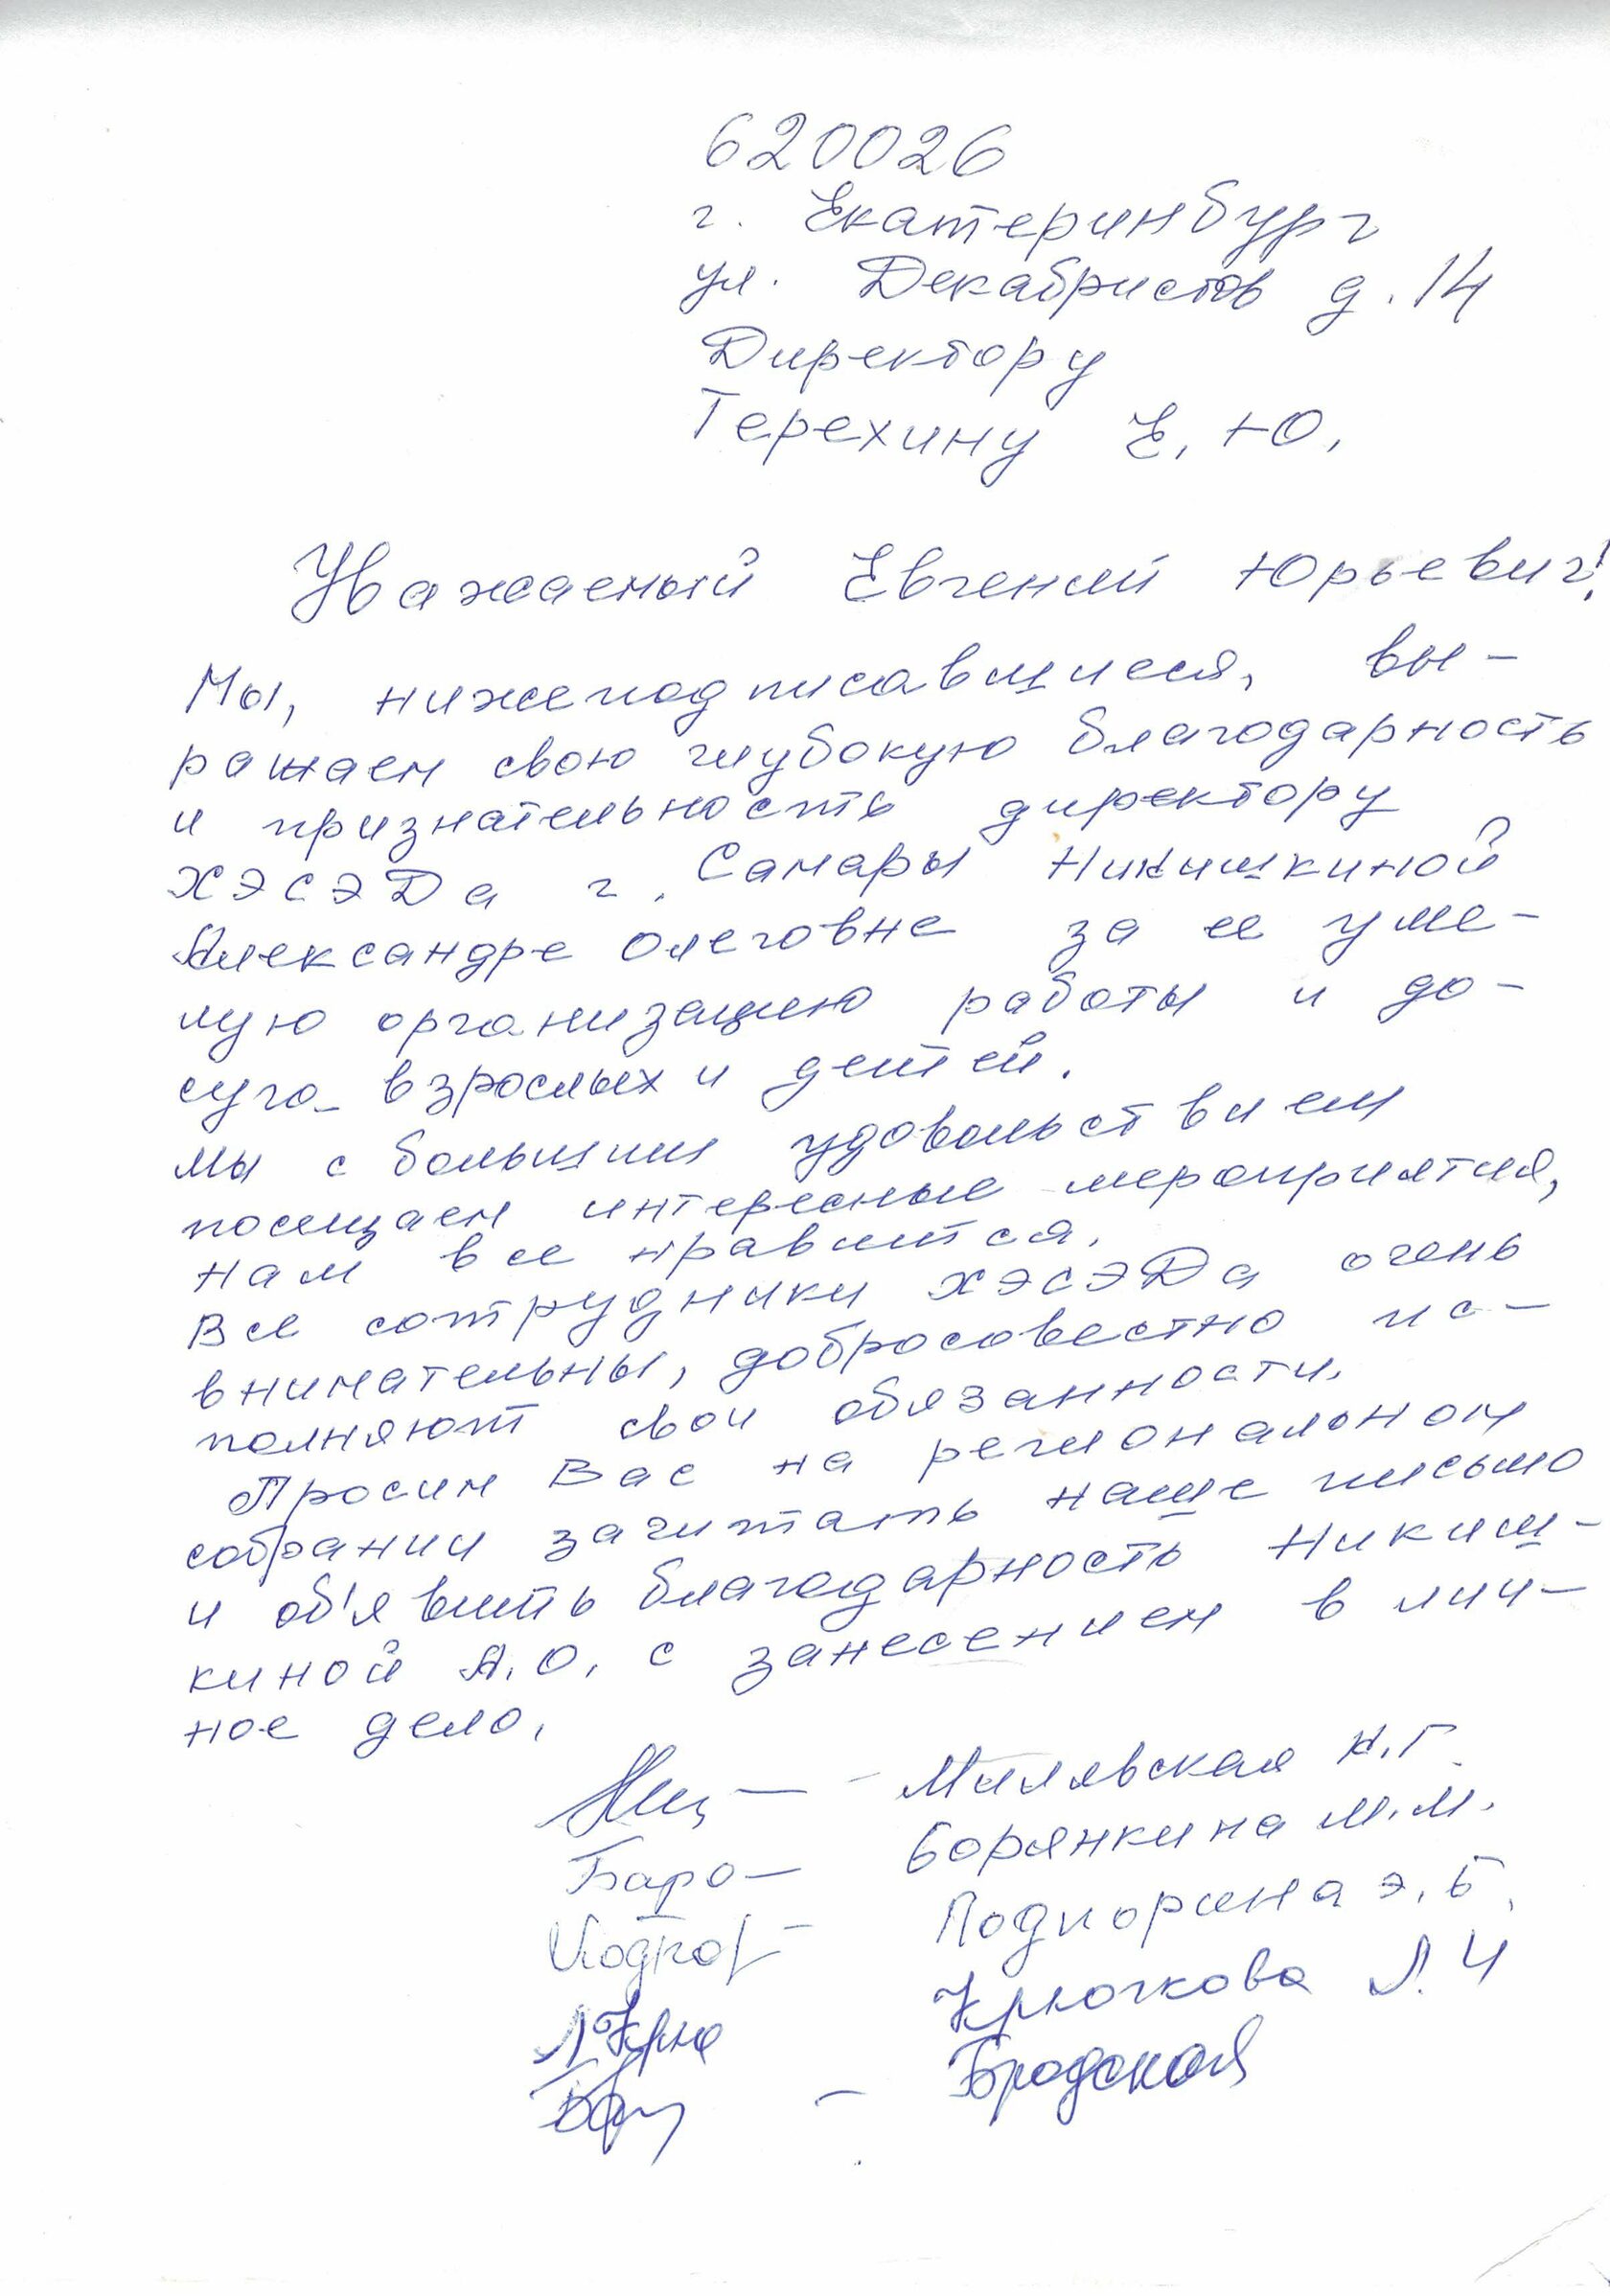 620026
г. Екатеринбург
ул. Декабристов д. 14
Директору
Терехину Е. Ю.
Уважаемый Евгений Юрьевич!
Мы, нижеподписавшиеся, вы-
ражаем свою глубокую благодарность
и признательность директору
ХЭСЭДа г. Самары Никишкиной
Александре Олеговне за ее уме-
лую организацию работы и до-
суга взрослых и детей.
Мы с большим удовольствием
посещаем интересные мероприятия,
нам все нравится.
Все сотрудники ХЭСЭДа очень
внимательны, добросовестно ис-
полняют свои обязанности.
Просим Вас на региональном
собрании зачитать наше письмо
и об'явить благодарность Никиш-
киной А.О. с занесением в лич-
ное дело.
– Милявская Н.Г.
Борянкина М.М.
Подпорина Э.Б.
Л Крю Крючкова Л. И
– Бродская